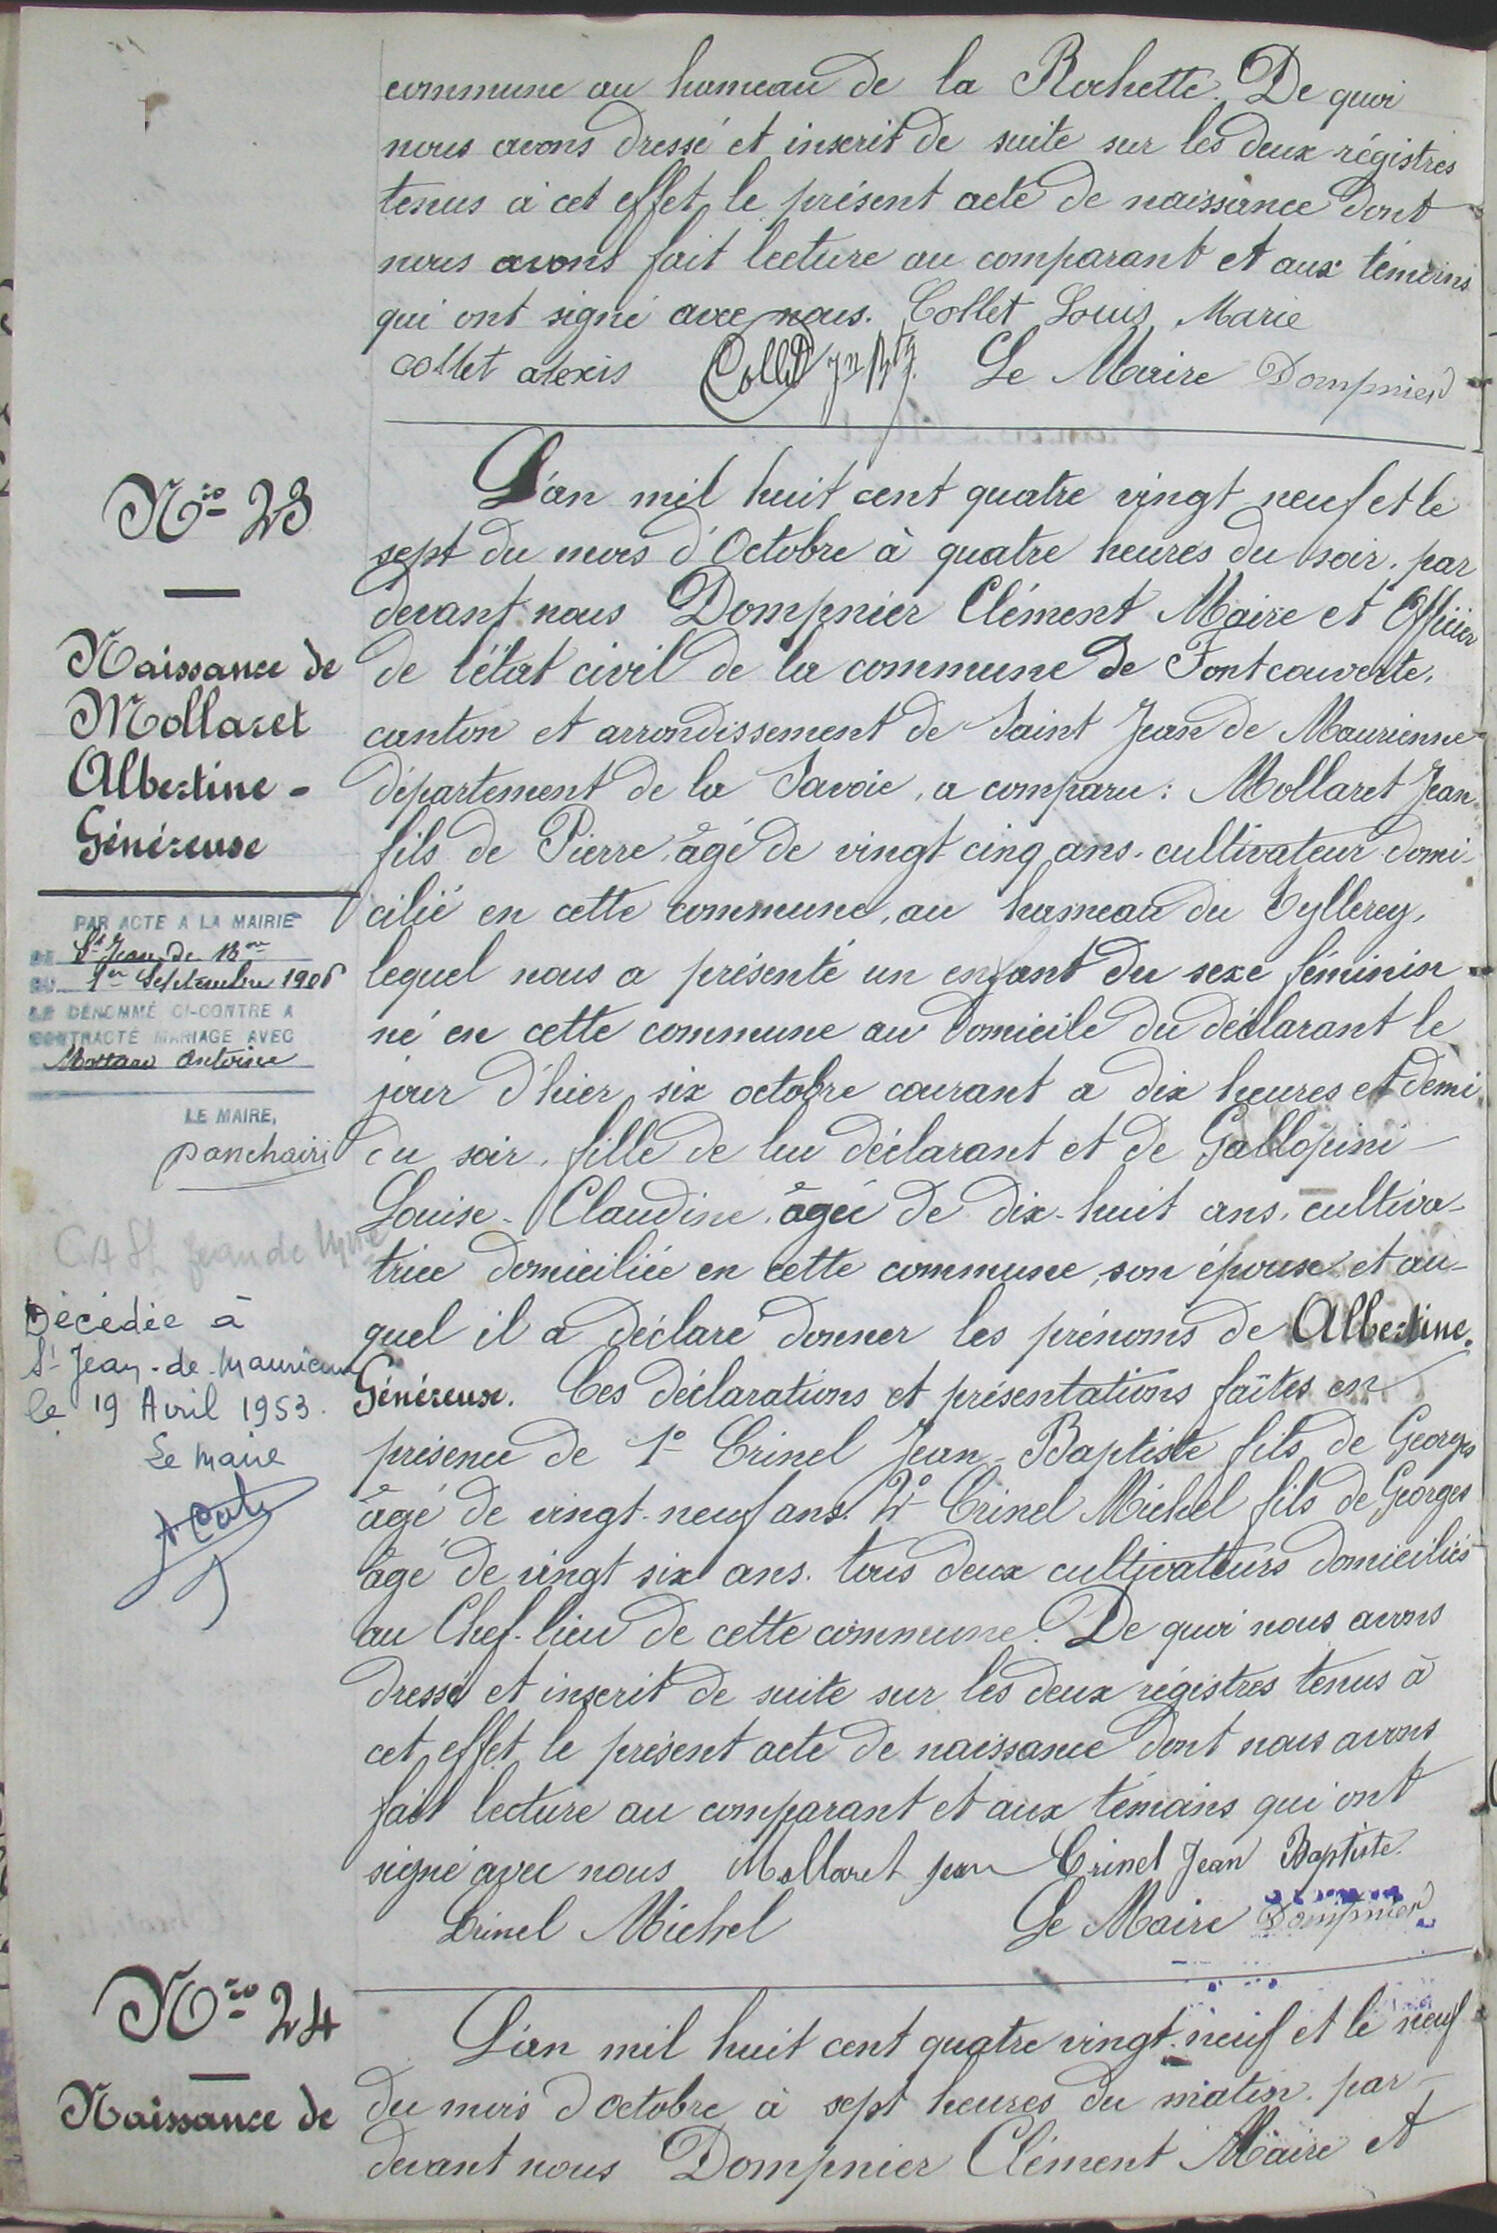 commune au hameau de la Rochette. De quoi
nous avons dressé et inscrit de suite sur les deux régistres
tenus à cet effet le présent acte de naissance dont
nous avons fait lecture au comparant et aux témoins
qui ont signé avec nous. Collet Louis Marie
collet alexis Collet Le Maire Dompnier
Nro 23
Naissance de
Mollaret
Albertine-
Généreuse
PAR ACTE A LA MAIRIE
DE St Jean de Mne
DU 1er Septembre 1906
LE DÉNOMMÉ CI-CONTRE A
CONTRACTÉ MARIAGE AVEC
Antoine
LE MAIRE,
CA St Jean de
Décédée à
St Jean-de-Maurienne
le 19 Avril 1953.
Le Maire
L'an mil huit cent quatre vingt neuf et le
sept du mois d'Octobre à quatre heures du soir, par
devant nous Dompnier Clément Maire et Officier
de l'état civil de la commune de Fontcouverte,
canton et arrondissement de Saint Jean de Maurienne
département de la Savoie, a comparu: Mollaret Jean
fils de Pierre, âgé de vingt cinq ans, cultivateur domi-
cilié en cette commune, au hameau du Eyllerey,
lequel nous a présenté un enfant du sexe féminin
né en cette commune au domicile du déclarant le
jour d'hier six octobre courant a dix heures et demi
du soir, fille de lui déclarant et de Gallopini
Louise-Claudine, âgée de dix-huit ans, cultiva-
trice domiciliée en cette commune, son épouse et au-
quel il a déclaré donner les prénoms de Albertine.
Généreuse. Ces déclarations et présentations faîtes en
présence de 1º Crinel Jean-Baptiste fils de Georges
âgé de vingt-neuf ans. 2º Crinel Michel fils de Georges
âgé de vingt six ans. tous deux cultivateurs domiciliés
au Chef-lieu de cette commune. De quoi nous avons
dressé et inscrit de suite sur les deux régistres tenus à
cet effet le présent acte de naissance dont nous avons
fait lecture au comparant et aux témoins qui ont
signé avec nous Mollaret jean Crinel Jean Baptiste.
Crinel Michel Le Maire Dompnier
Nro 24
Naissance de
L'an mil huit cent quatre vingt-neuf et le neuf
du mois d'octobre à sept heures du matin. par-
devant nous Dompnier Clément Maire et